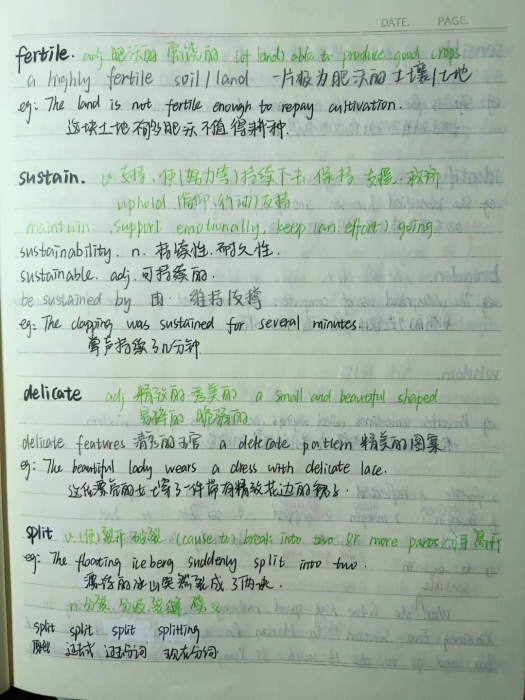 DATE. PAGE.
fertile. adj 肥沃的 富饶的 (of land) able to produce good crops
a highly fertile soil/land 一片极为肥沃的土壤/土地
eg: The land is not fertile enough to repay cultivation.
这块土地不够肥沃不值得耕种.
sustain. v. 支持, 使(努力等)持续下去 保持 支撑.
uphold (信仰, 行动) 支持
maintain. support emotionally, keep (an effort) going
sustainability. n. 持续性. 耐久性.
sustainable. adj. 可持续的.
be sustained by 由 维持/支撑
eg: The clapping was sustained for several minutes.
掌声持续了几分钟.
delicate adj 精致的 秀美的 a small and beautiful shaped
易碎的 脆弱的
delicate features 清秀的五官 a delicate pattern 精美的图案
eg: The beautiful lady wears a dress with delicate lace.
这位漂亮的女士穿了一件带有精致花边的
split v. (使)裂开 破裂 (cause to) break into two or more parts. 分开 离开
eg: The floating iceberg suddenly split into two.
漂浮的冰山突然裂成了两块.
n. 分裂
split split split splitting
过去式 过去分词 现在分词